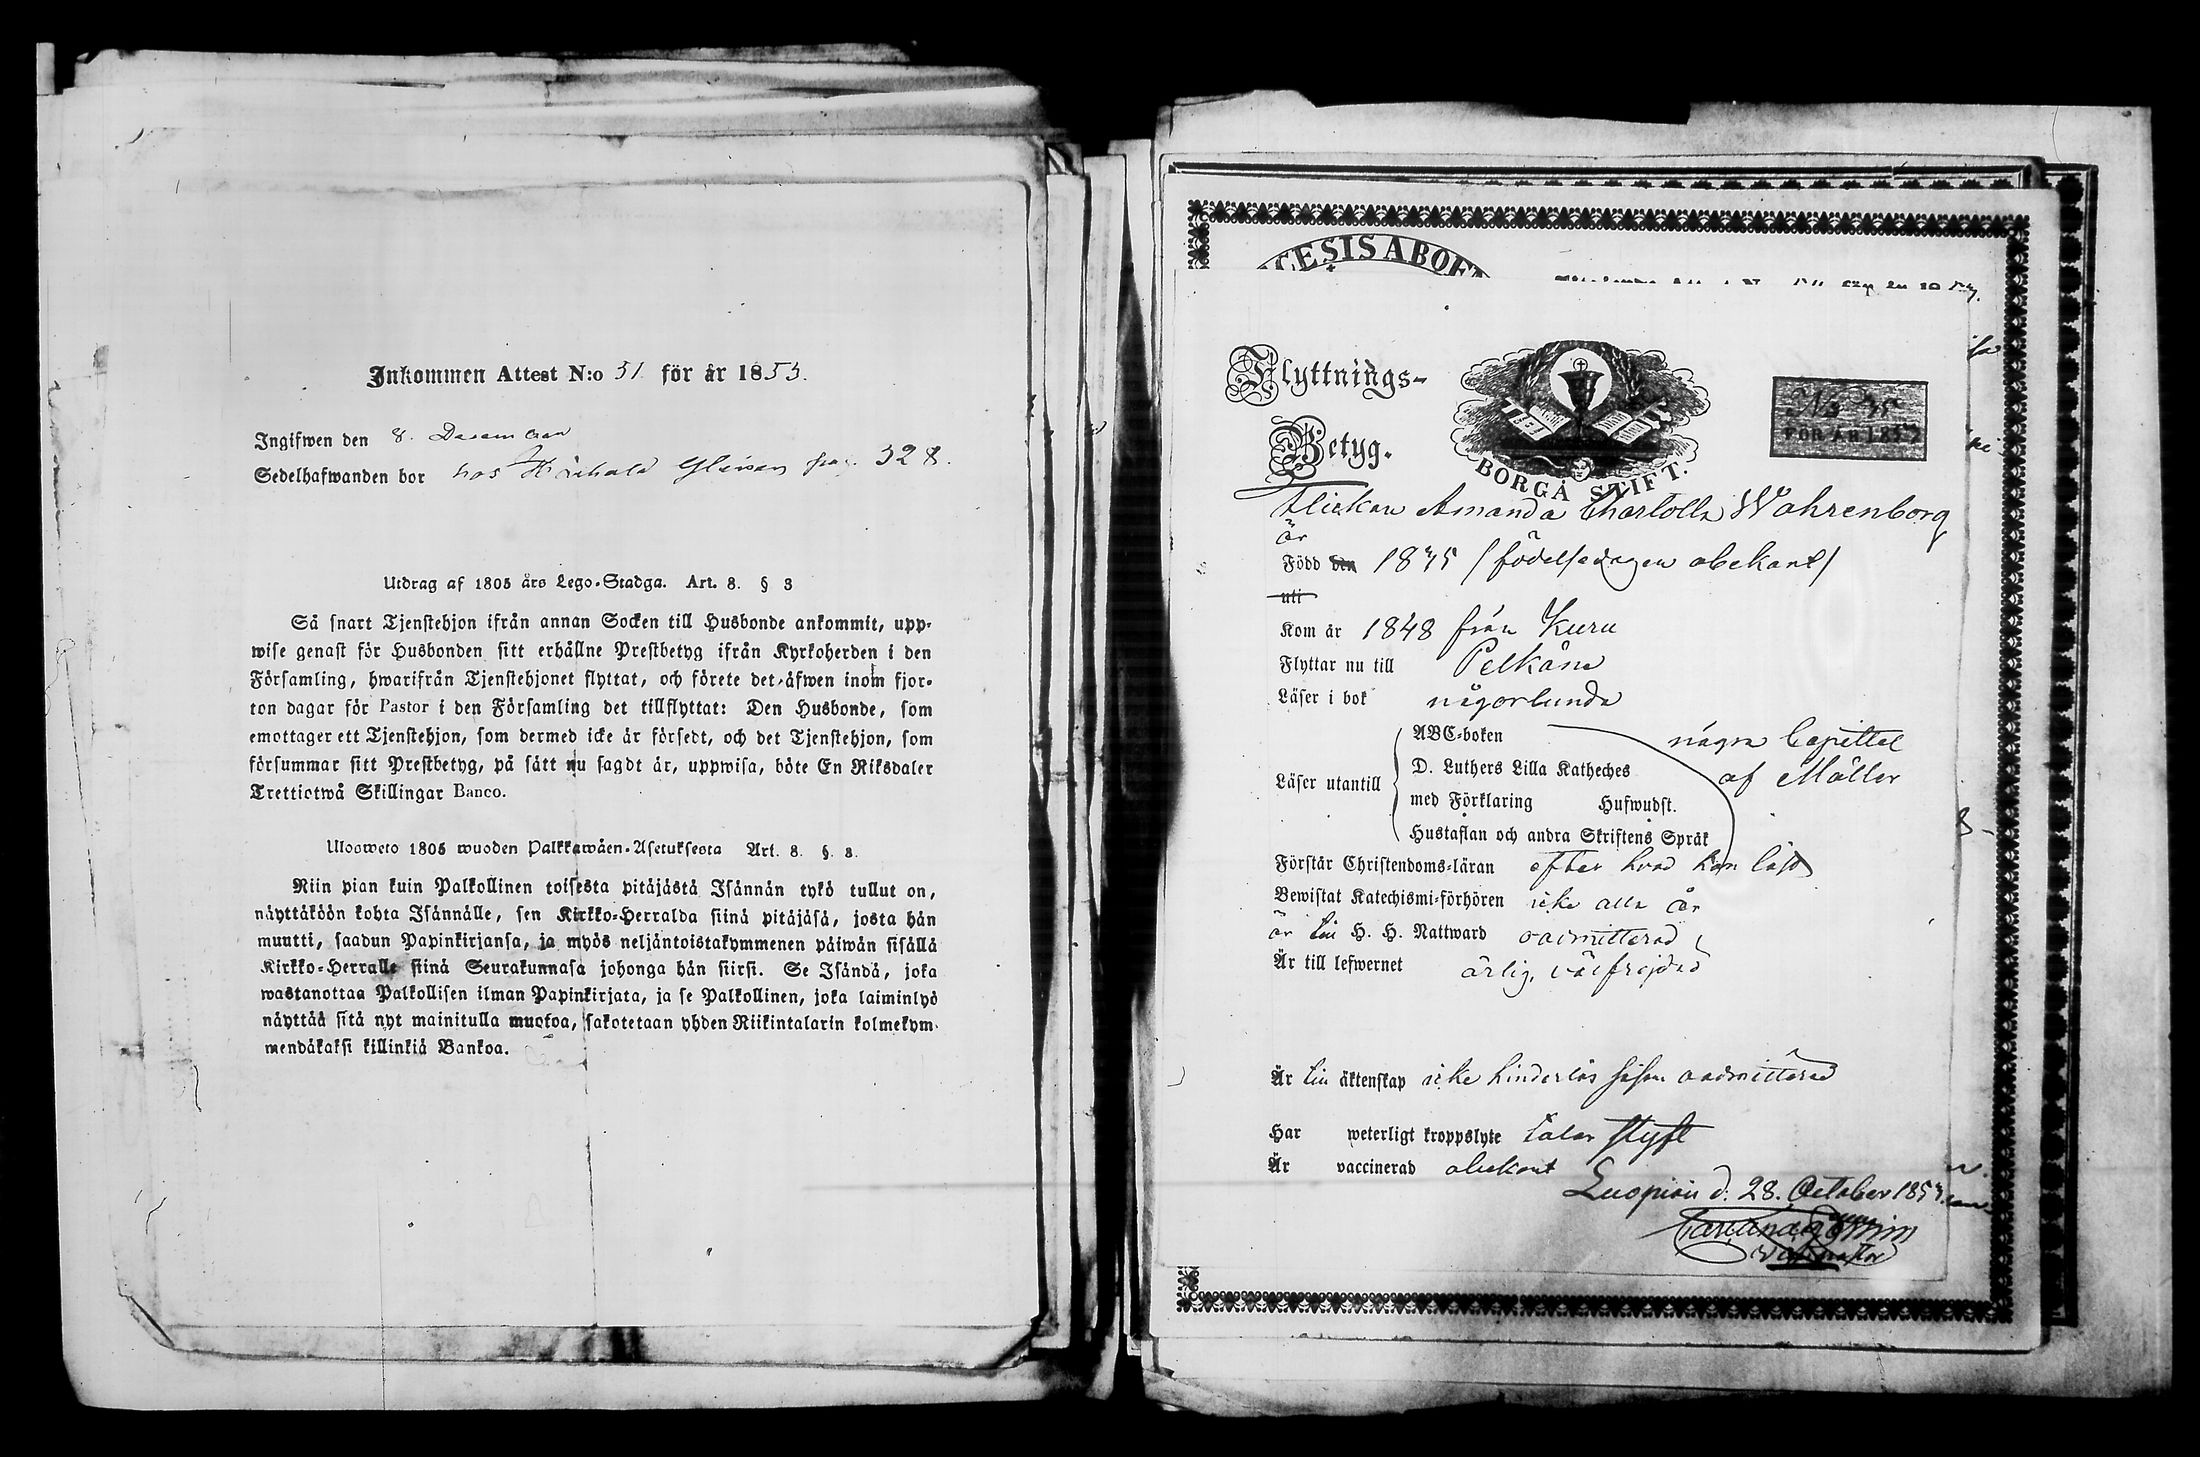 Inkommen Attest N:o 51 för år 1853.
Ingifwen den 8. December
Sedelhafwanden bor hos Härhala pag. 328.
Utdrag af 1805 års Lego-Stadga. Art. 8. § 3
Så snart Tjenstehjon ifrån annan Socken till Husbonde ankommit, upp-
wise genast för Husbonden sitt erhållne Prestbetyg ifrån Kyrkoherden i den
Församling, hwarifrån Tjenstehjonet flyttat, och förete det äfwen inom fjor-
ton dagar för Pastor i den Församling det tillflyttat: Den Husbonde, som
emottager ett Tjenstehjon, som dermed icke är försedt, och det Tjenstehjon, som
försummar sitt Prestbetyg, på sätt nu sagdt är, uppwisa, böte En Riksdaler
Trettiotwå Skillingar Banco.
Uloosweto 1805 wuoden Palkkawäen-Asetuksesta Art. 8. §. 3.
Niin pian kuin Palkollinen toisesta pitäjästä Isännän tykö tullut on,
näyttäköön kohta Isännälle, sen Kirkko-Herralda siinä pitäjäsä, josta hän
muutti, saadun Papinkirjansa, ja myös neljäntoistakymmenen päiwän sisällä
Kirkko-Herralle siinä Seurakunnasa johonga hän siirsi. Se Isändä, joka
wastanottaa Palkollisen ilman Papinkirjata, ja se Palkollinen, joka laiminlyö
näyttää sitä nyt mainitulla muotoa, sakotetaan yhden Riikintalarin kolmekym-
mendäkaksi killinkiä Bankoa.
CESIS ABOE
Flyttnings-
Betyg.
BORGÅ STIFT.
No 35
FÖR ÅR 1853
Flickan Amanda Charlotta Wahrenborg
är
Född den 1835 /födelsedagen obekant/
uti
Kom år 1848 från Kuru
Flyttar nu till Pelkäne
Läser i bok någorlunda
ABC-boken några Capittel
Läser utantill D. Luthers Lilla Katheches af Möller
med Förklaring Hufwudst.
Hustaflan och andra Skriftens Språk
Förstår Christendoms-läran efter hvad hon läst
Bewistat Katechismi-förhören icke alla år
är till H. H. Nattward oadmitterad
Är till lefwernet ärlig, välfrejdad
Är till äktenskap icke hinderlös såsom oadmitterad
Har weterligt kroppslyte talar styft
Är vaccinerad obekant
Luopiois d. 28. October 1853